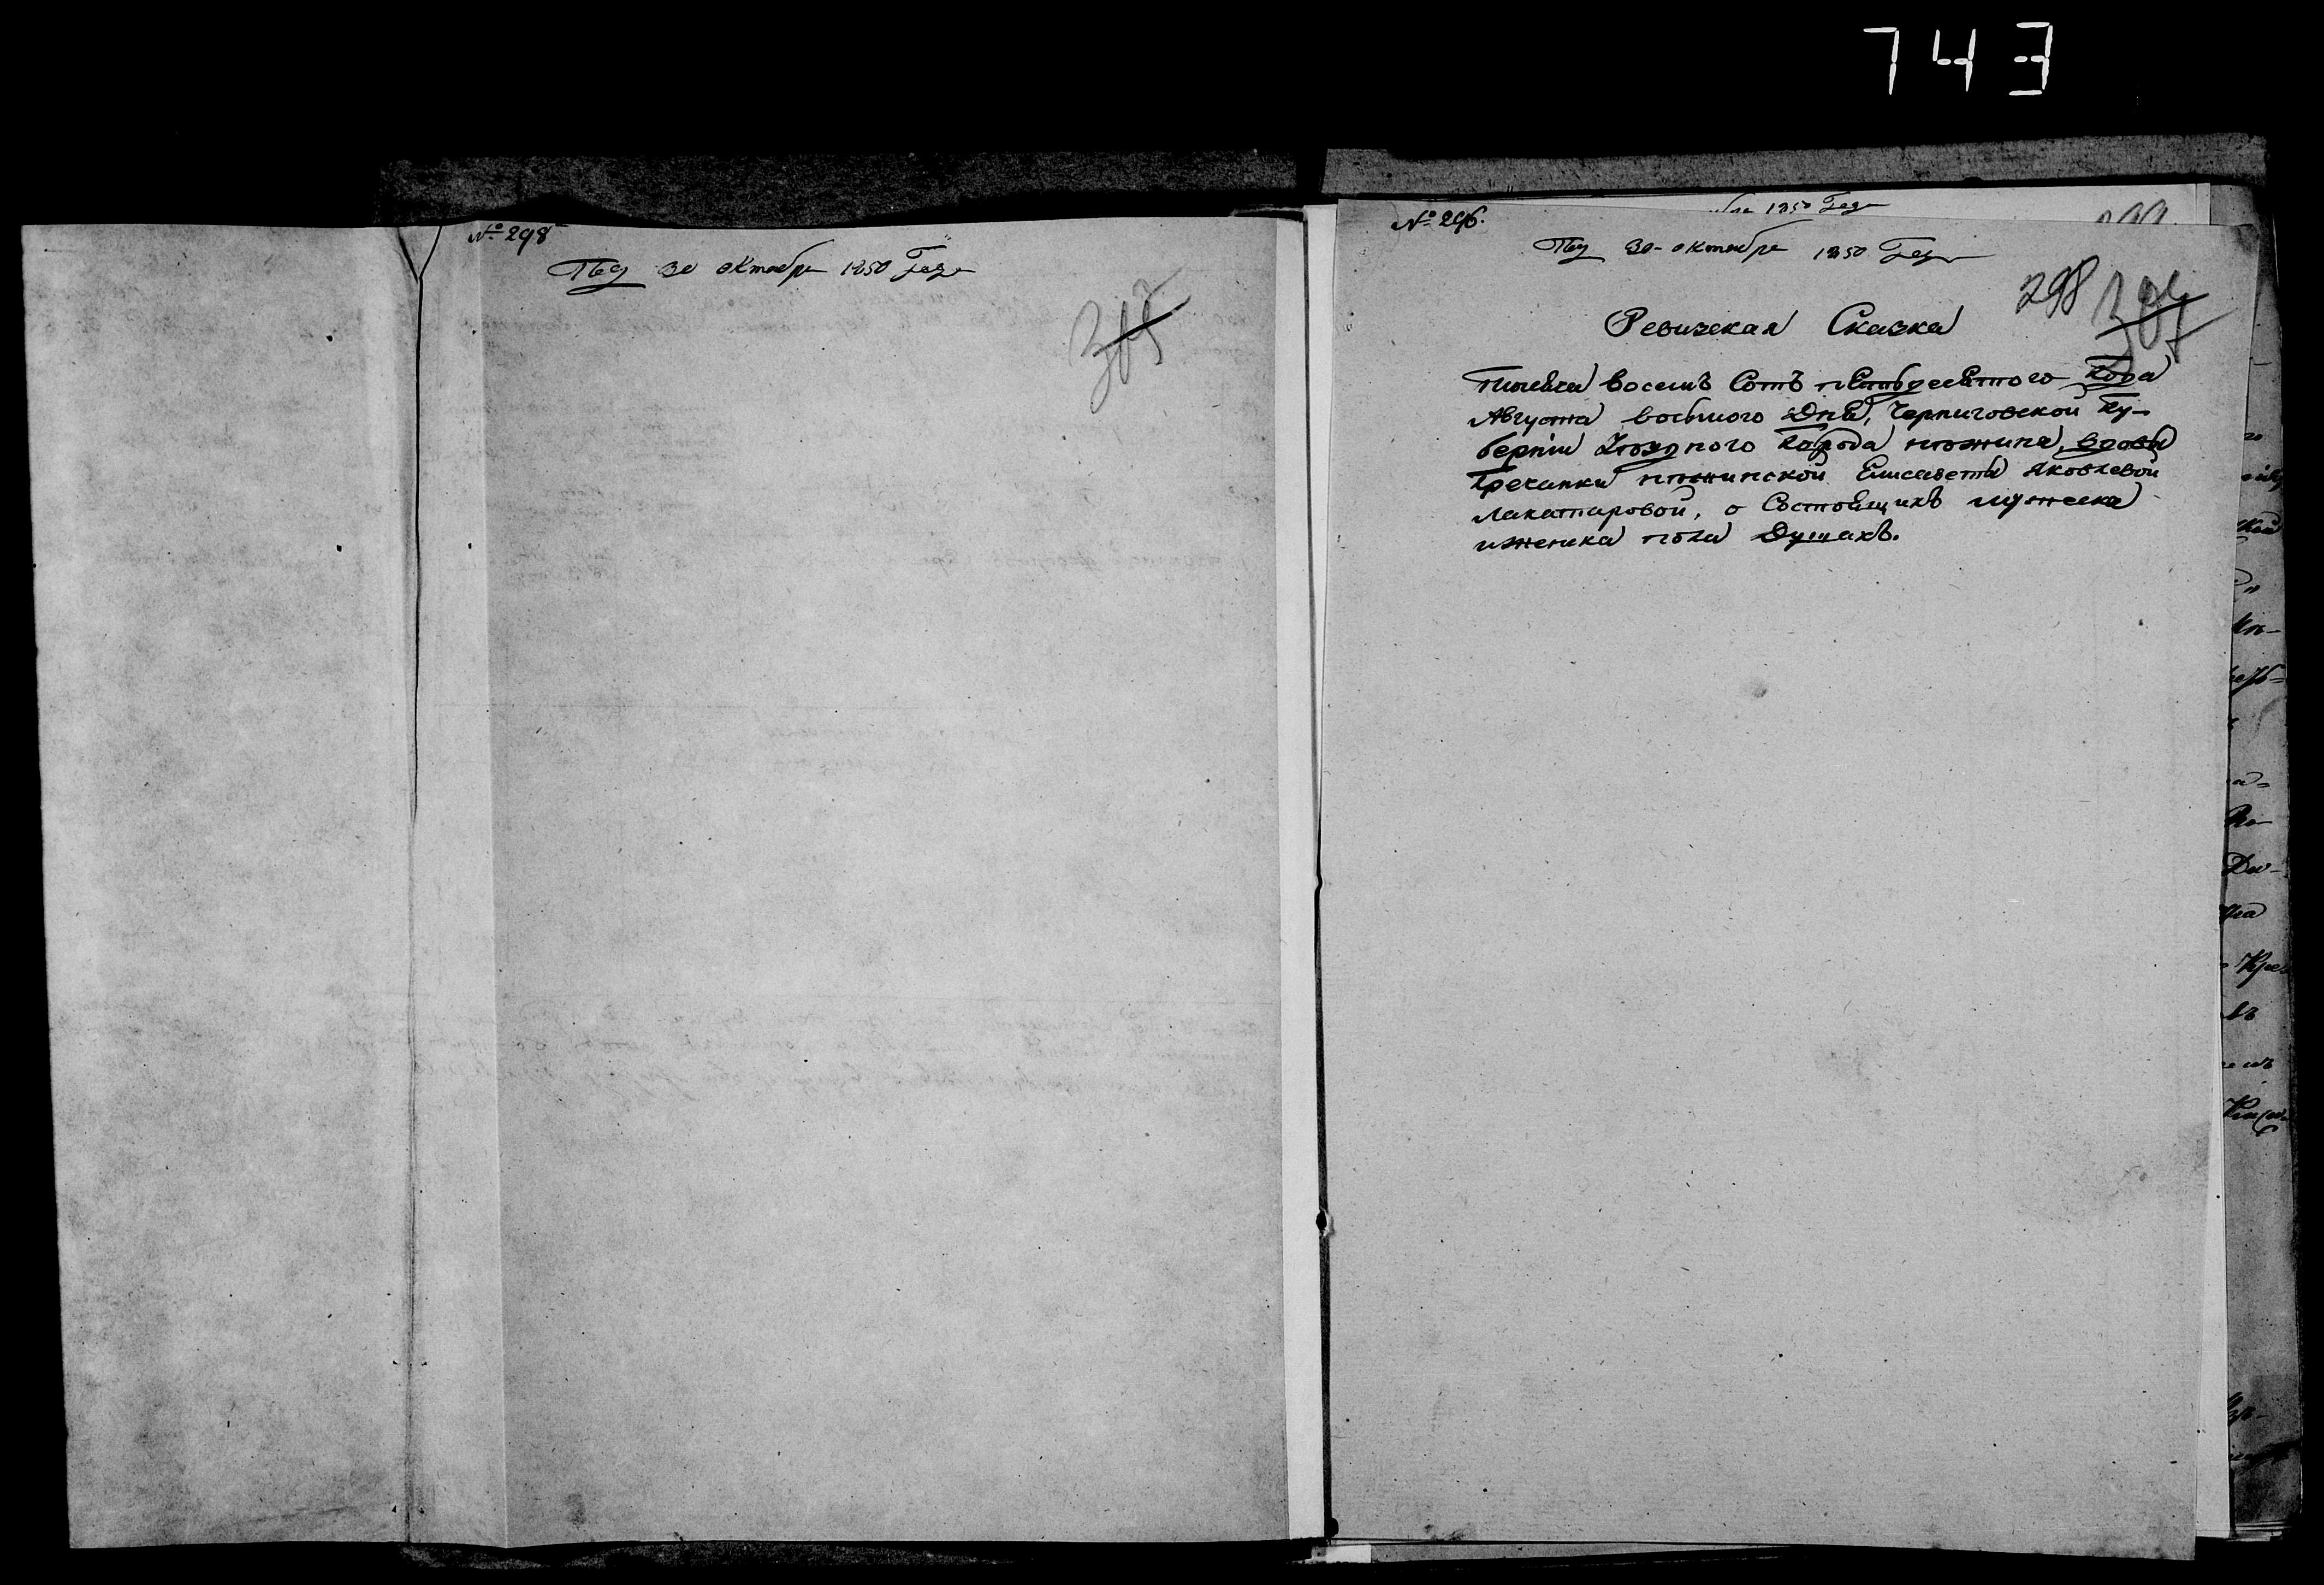 743
№ 298
Под 30 октября 1850 Года
№ 296.
Под 30 - октября 1850 Года
298
Ревизская Сказка
Тысяча восемъ Сотъ пятьдесятого Года
Августа восьмого Дня, Черниговской Гу-
берніи Уѣзднаго Города Нѣжина, вдовы
Гречанки нѣжинской Елисаветы Яковлевой
Лакатаровой, о Состоящихъ мужеска
и женска пола Душахъ.